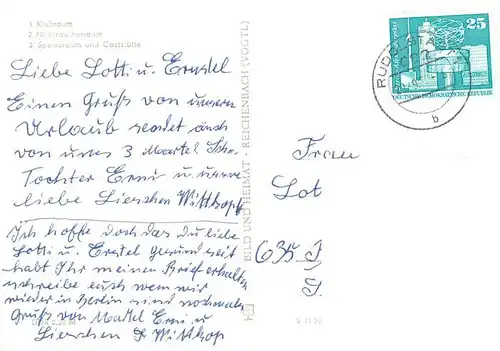 1 Klubraum
2 Nichtraucherraum
3 Speiseraum und Gaststätte
Liebe Lotti u. Erustel
Einen Gruß von unsern
Urlaub sendet auch
von uns 3 Martel
Tochter Erni u. unsere
liebe Lieschen Wittkopf
Ich hoffe doch das Du liebe
Lotti u. Erustel gesund seit
habt Ihr meinen Brief erhalten
schreibe euch wenn wir
wieder in Berlin sind nochmals
Gruß von Mattel Erni u
Lieschen Wittkop
BILD UND HEIMAT · REICHENBACH (VOGTL)
V 11 50
25
DEUTSCHE DEMOKRATISCHE REPUBLIK
RUDOLSTA
b
Frau
Lot